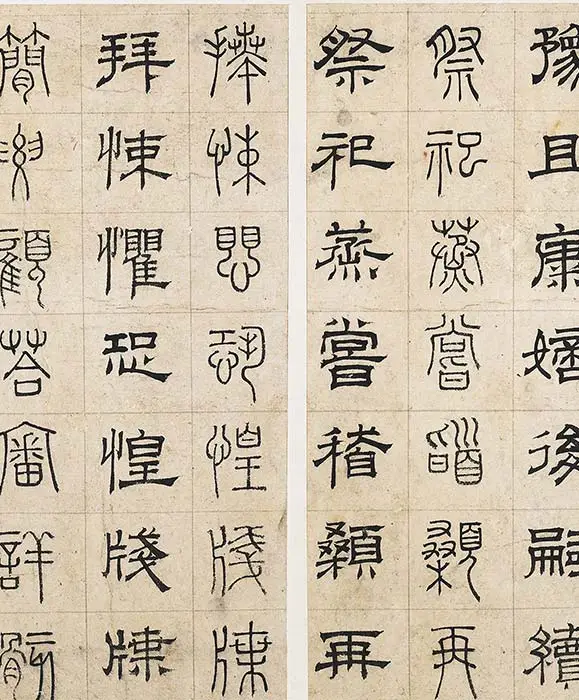 豫且康嫡後嗣續
祭祀蒸嘗稽顙再
祭祀蒸嘗稽顙再
拜悚懼恐惶牋牒
拜悚懼恐惶牋牒
簡要顧荅審詳骸